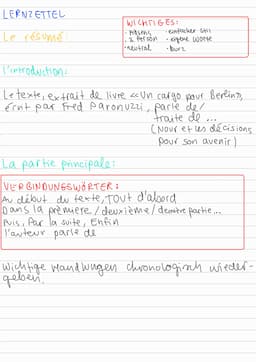 LERNZETTEL
Le résumé:
WICHTIGES:
· Präsens · einfacher Stil
· 3. Person · eigene Worte
· neutral · kurz
l'introduction:
Le texte, extrait de livre «Un cargo pour Berlin»,
écrit par Fred Paronuzzi, parle de/
traite de ...
(Nour et ses décisions
pour son avenir)
La partie principale:
VERBINDUNGSWÖRTER:
Au début du texte, TOUT d'abord
Dans la première/deuxième/dernière partie...
Puis, Par la suite, Enfin
l'auteur parle de
Wichtige Handlungen chronologisch wieder-
geben.